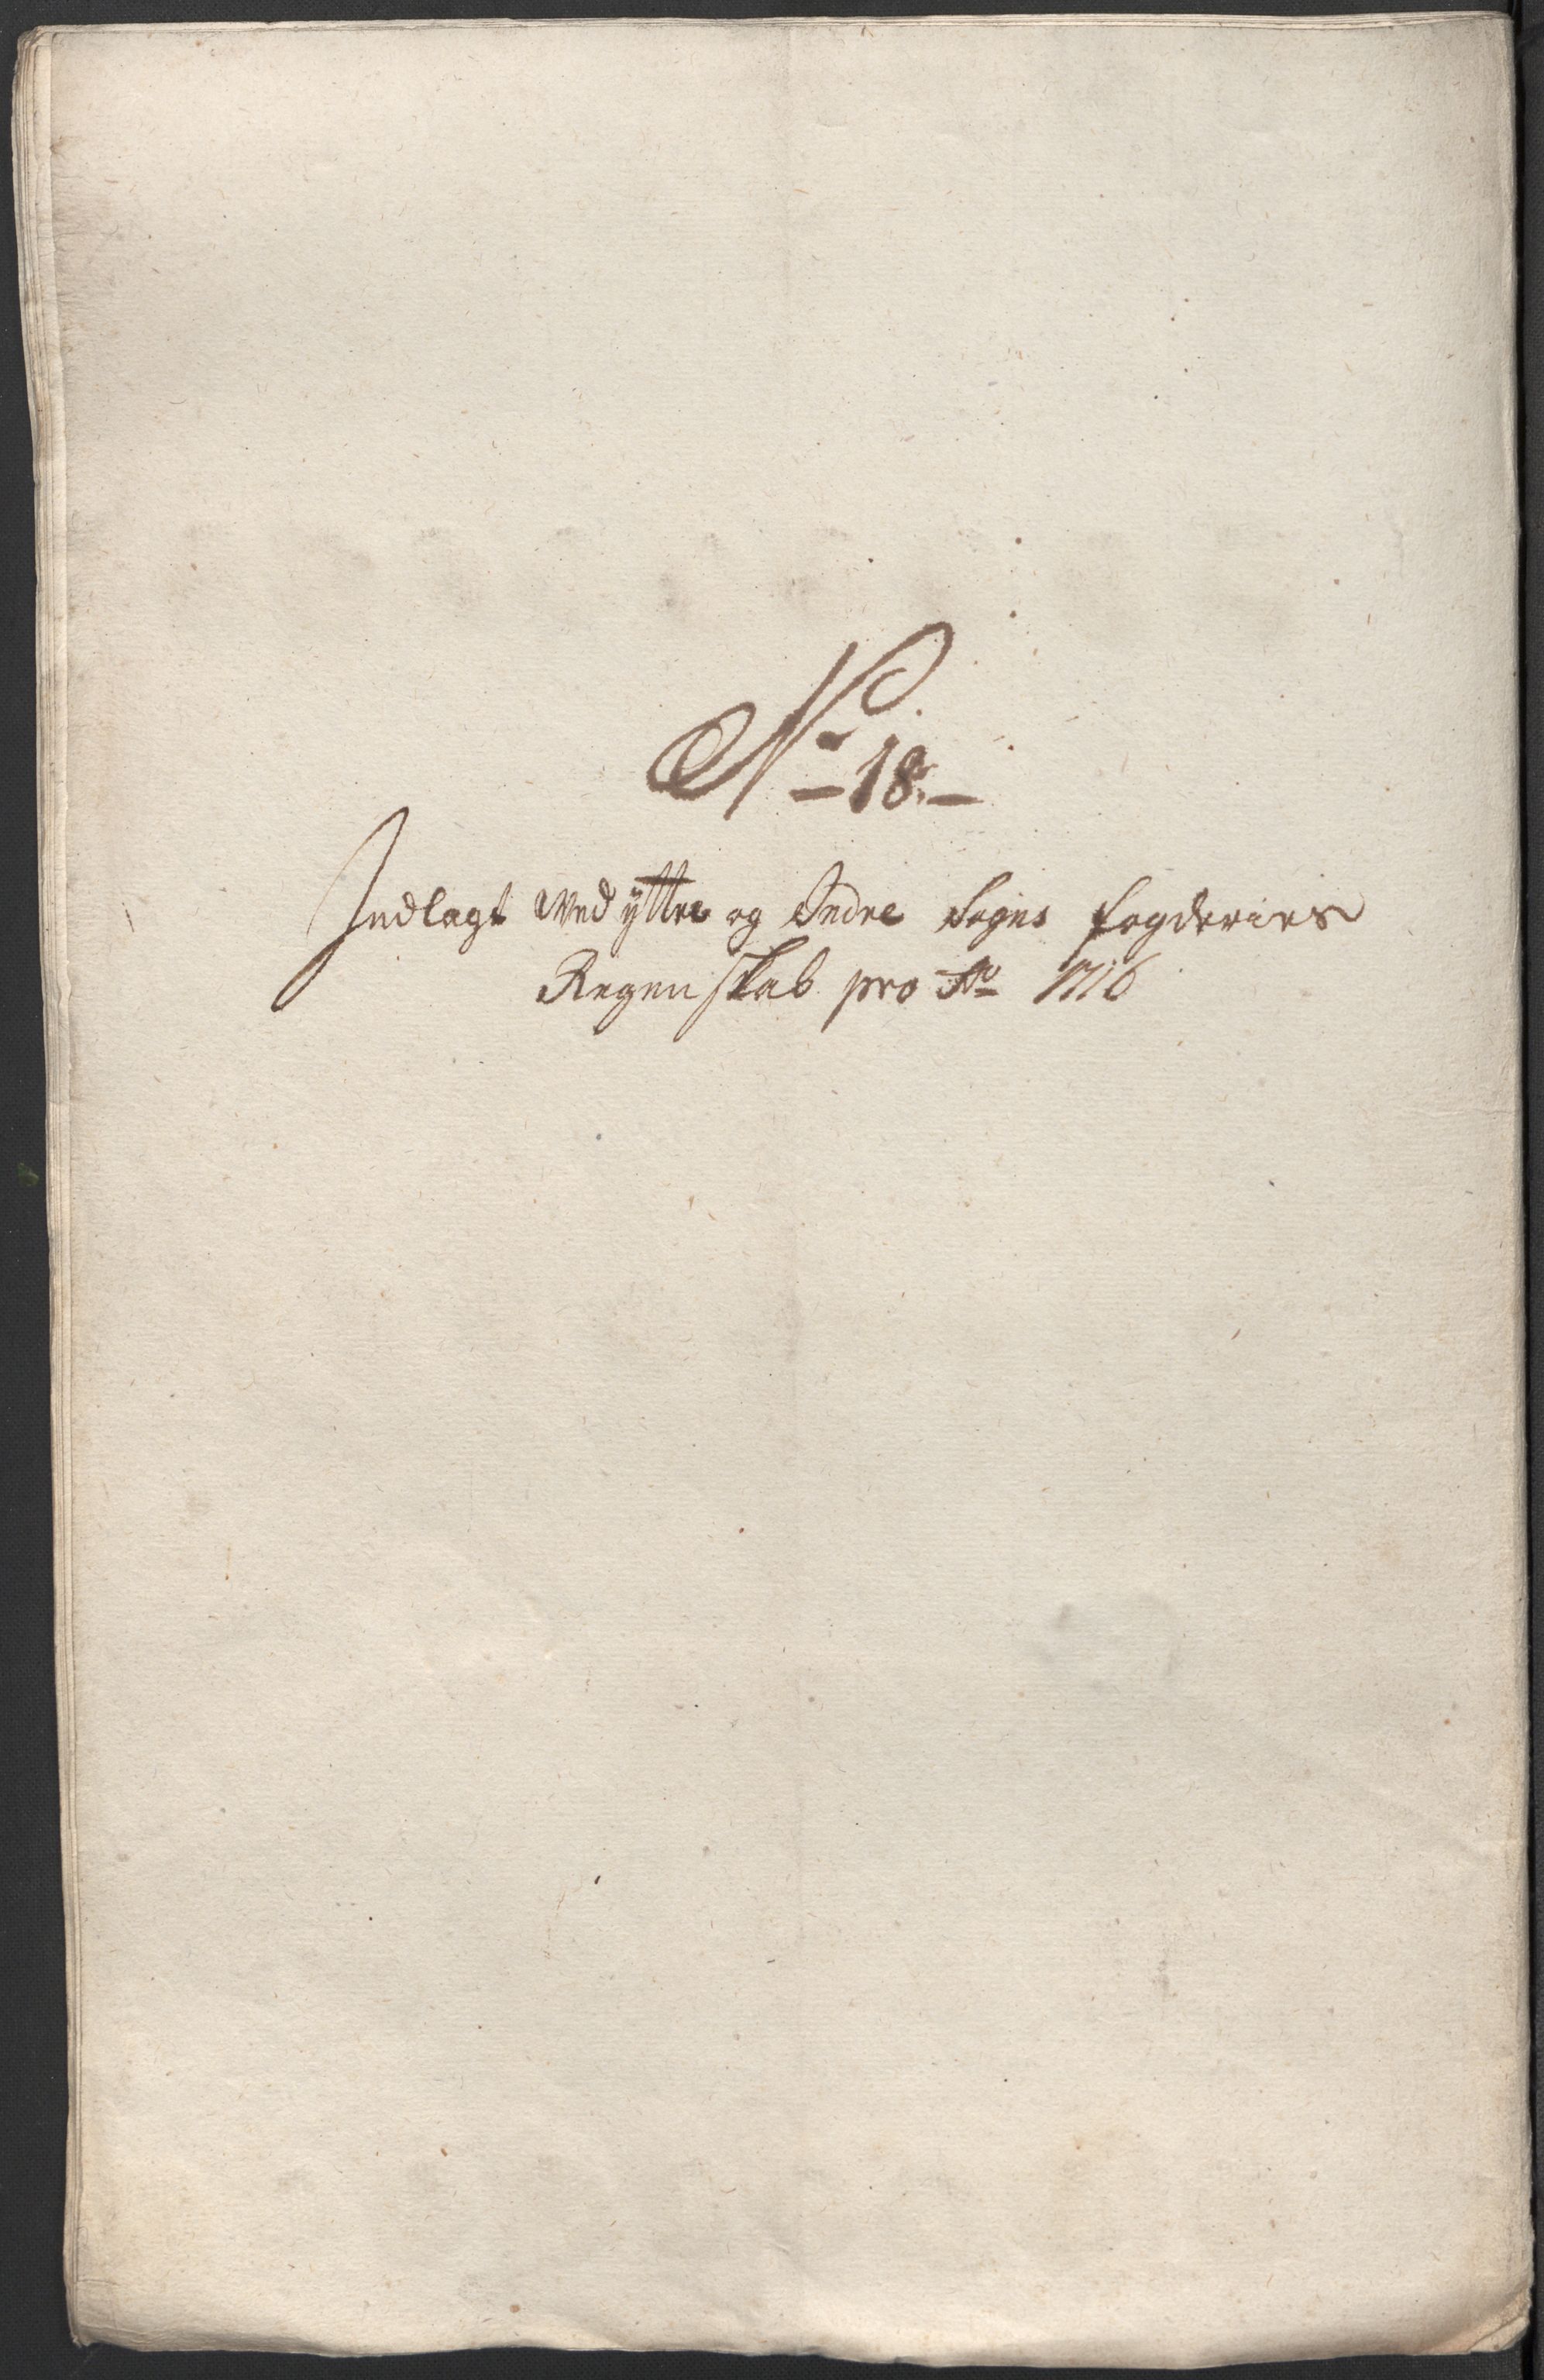 No 18.
Indlagt Wed ÿttre og Indre Sogns fogderies
Regenskab pro Ao 1716